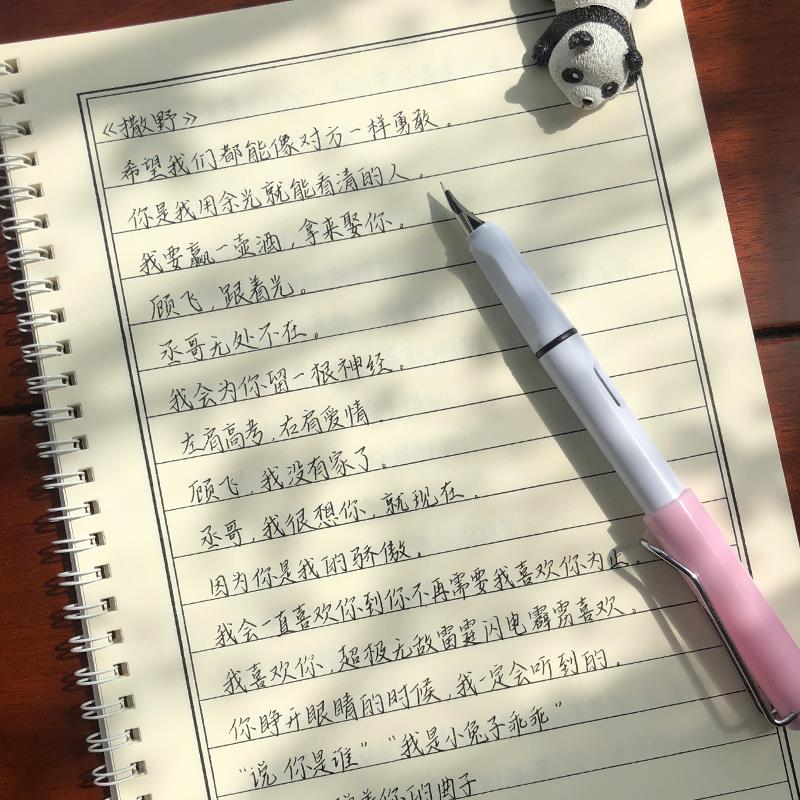 《撒野》
希望我们都能像对方一样勇敢。
你是我用余光就能看清的人。
我要赢一壶酒，拿来娶你。
顾飞，跟着光。
丞哥无处不在。
我会为你留一根神经。
左肩高考，右肩爱情.
顾飞，我没有家了。
丞哥，我很想你，就现在.
因为你是我的骄傲。
我会一直喜欢你到你不再需要我喜欢你为止.
我喜欢你，超极无敌雷霆闪电霹雳喜欢。
你睁开眼睛的时候，我一定会听到的.
“说 你是谁” “我是小兔子乖乖”
着你的曲子